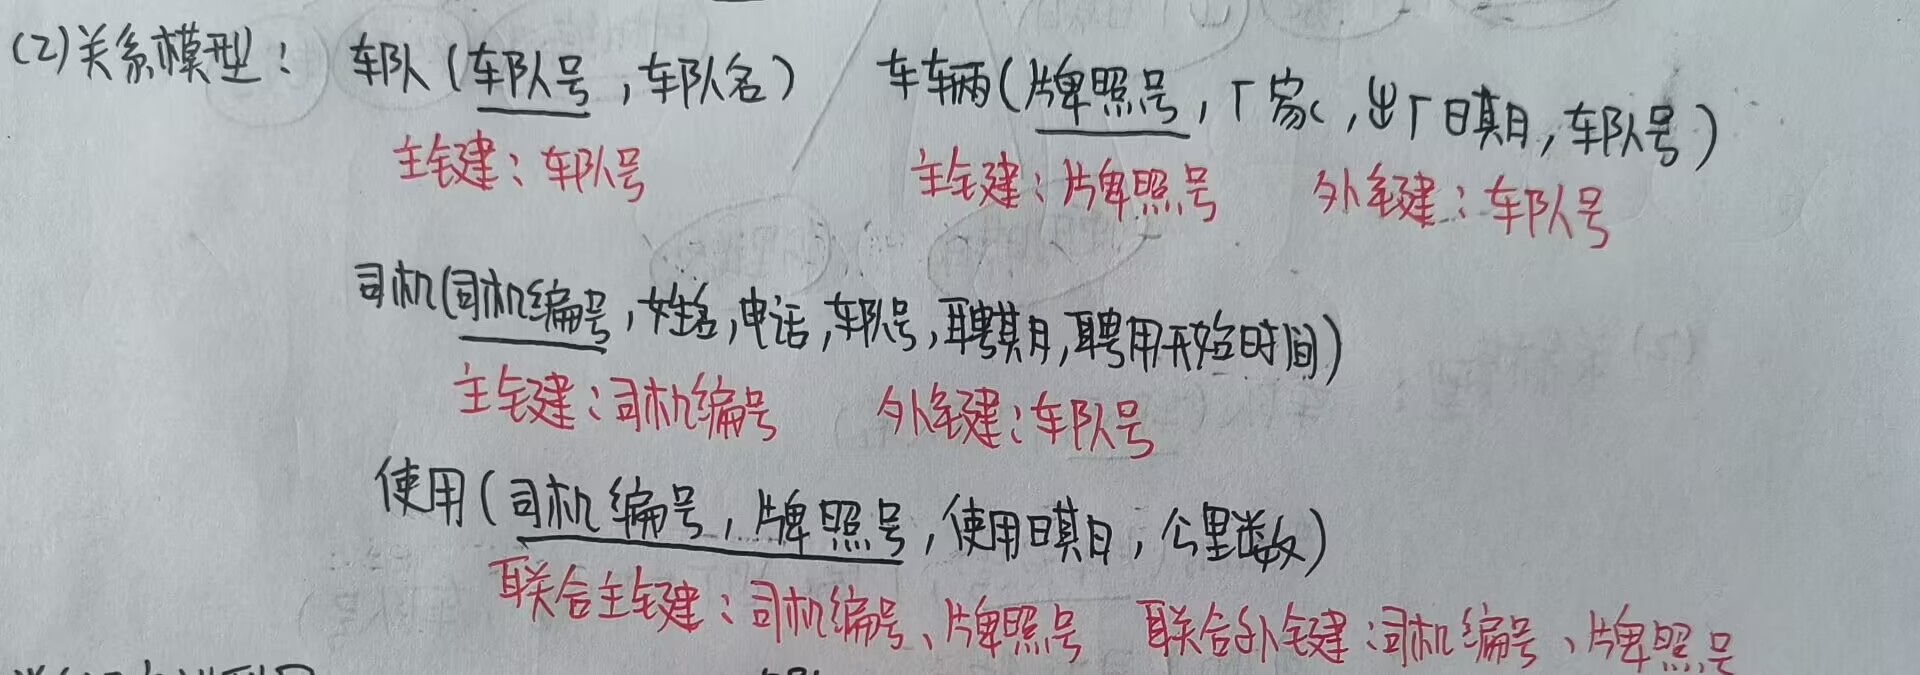 (2)关系模型： 车队（车队号，车队名） 车辆（牌照号，厂家，出厂日期，车队号）
主键：车队号 主键：牌照号 外键：车队号
司机（司机编号，姓名，电话，车队号，聘期，聘用开始时间）
主键：司机编号 外键：车队号
使用（司机编号，牌照号，使用日期，公里数）
联合主键：司机编号、牌照号 联合外键：司机编号、牌照号